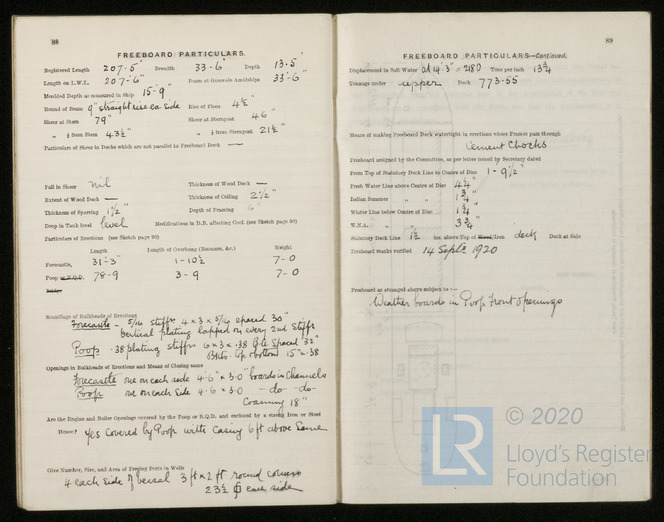 88
FREEBOARD PARTICULARS.
Registered Length 207·5" Breadth 33·6" Depth 13·5"
Length on L.W.L. 207-6" Beam at Gunwale Amidships 33-6"
Moulded Depth as measured in Ship 15-9"
Round of Beam 9" straight rise ea side Rise of Floor 4½"
Sheer at Stem 79" Sheer at Sternpost 46"
" ⅛ from Stem 43½" " ⅛ from Sternpost 21½"
Particulars of Sheer in Decks which are not parallel to Freeboard Deck —
Fall in Sheer nil Thickness of Wood Deck —
Extent of Wood Deck — Thickness of Ceiling 2½"
Thickness of Sparring 1½" Depth of Framing 6"
Drop in Tank level level Modifications in D.B. affecting Coef. (see Sketch page 90)
Particulars of Erections (see Sketch page 90)
Length Length of Overhang (Rauzeen, &c.) Height
Forecastle, 31-3" 1-10½ 7-0
Poop 78-9 3-9 7-0
Scantlings of Bulkheads of Erections
Forecastle - 5/16 stiffs 4 × 3 × 5/16 spaced 30"
Vertical plating lapped on every 2nd stiff
Poop ·38 plating stiffs 6 × 3 × ·38 B.A. spaced 32"
Bkts. top & bottom 15" × ·38
Openings in Bulkheads of Erections and Means of Closing same
Forecastle one on each side 4-6" × 3·0" boards in Channels
Poop one on each side 4-6 × 3·0 -do- -do-
Coaming 18"
Are the Engine and Boiler Openings covered by the Poop or R.Q.D. and enclosed by a strong Iron or Steel
House? Yes covered by Poop with casing 6 ft above same
Give Number, Size, and Area of Freeing Ports in Wells
4 each side of vessel 3 ft × 2 ft round corners
23½ each side
89
FREEBOARD PARTICULARS—Continued.
Displacement in Salt Water at 14'3" = 2180 Tons per inch 13¾
Tonnage under upper Deck 773·55
Means of making Freeboard Deck watertight in erections where Frames pass through
Cement Chocks
Freeboard assigned by the Committee, as per letter issued by Secretary dated
From Top of Statutory Deck Line to Centre of Disc 1-9½"
Fresh Water Line above Centre of Disc 4¼"
Indian Summer " " 1¾"
Winter Line below Centre of Disc 1¾"
W.N.A. " " 3¾"
Statutory Deck Line 1½ ins. above Top of Iron deck Deck at Side
Freeboard marks verified 14 Septr 1920
Freeboard as arranged above subject to :—
Weather boards in Poop Front openings
© 2020
LR
Lloyd's Register
Foundation